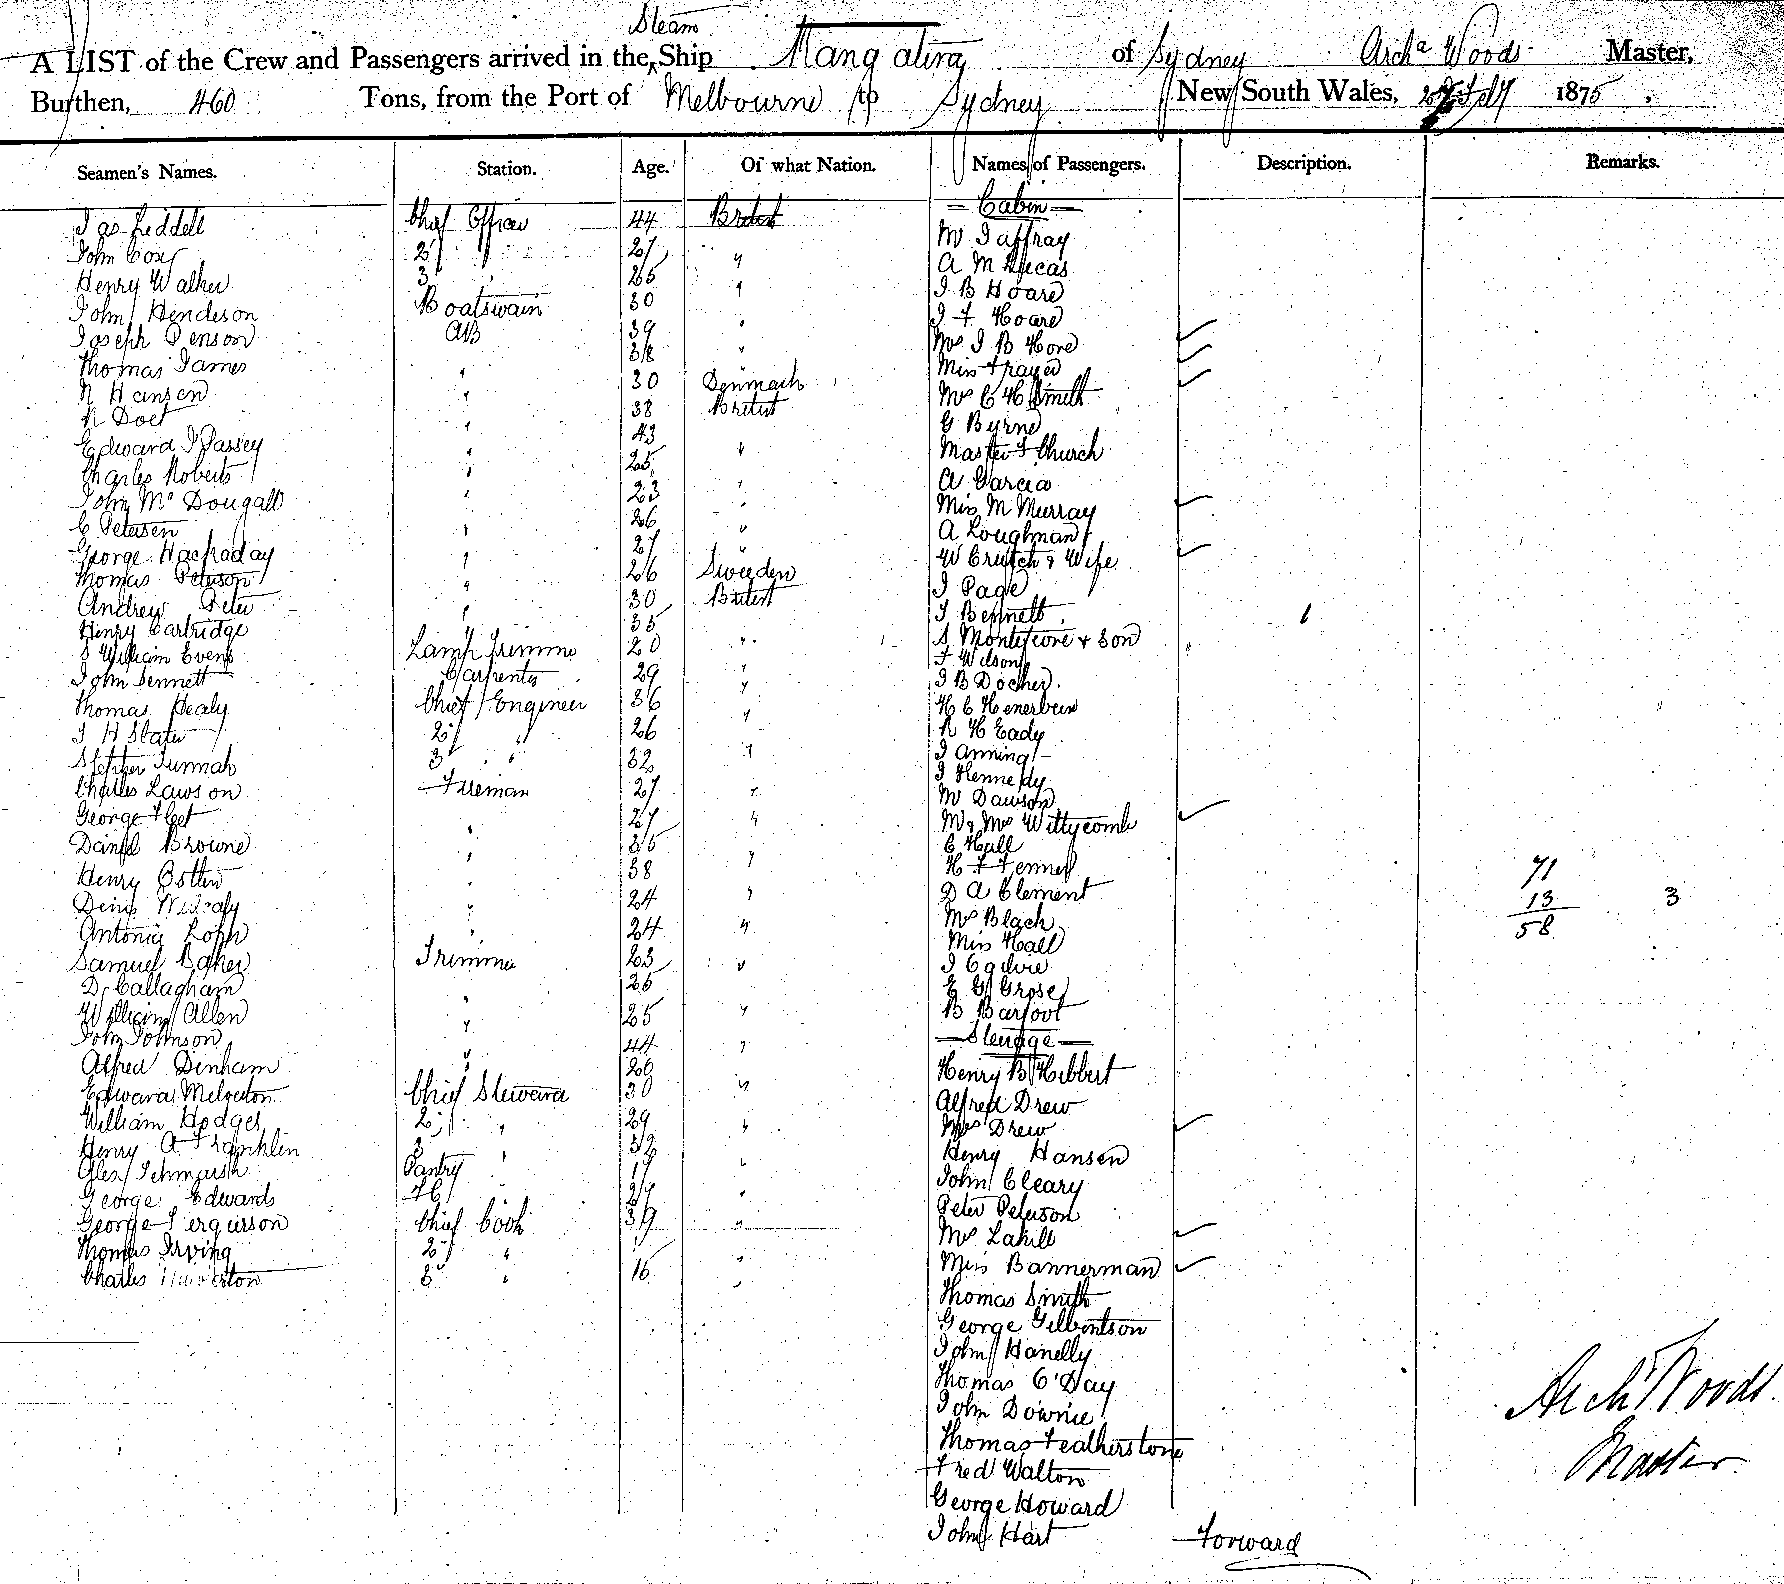 Steam
A LIST of the Crew and Passengers arrived in the Ship of Sydney Archd Woods Master,
Burthen, 460 Tons, from the Port of Melbourne to Sydney New South Wales, Feby 1875
Seamen's Names. Station. Age. Of what Nation. Names of Passengers. Description. Remarks.
— Cabin —
Jas Liddell Chief Officer 44 British
John Cox 2d 27 " Mr Jaffray
Henry Walker 3 25 " A M Lucas
John Henderson Boatswain 30 " J B Hoare
Joseph Penson AB 39 " J F Hoare
Thomas James " 38 " Mrs J B Hore
N Hansen " 30 Denmark Miss Frayer
R Doel " 38 British Mrs C H Smith
Edward J Passey " 43 " G Byrne
Charles Roberts " 25 " Master F Church
John McDougall " 23 " A Garcia
C Petersen " 26 " Miss M Murray
George " 27 " A Loughman
Thomas Peterson " 26 Sweeden W Crutch & Wife
Andrew Peter " 30 British J Page
Henry Cartridge " 35 " J Bennett
William Evens Lamp Trimmer 20 " S Montefiore & Son
John Sennett Carpenter 29 " F Wilson
Thomas Healy Chief Engineer 36 " J B Docker
J H Slater 2d " 26 " H C Henerbein
Stephen Tunnah 3 " 32 " R H Eady
Charles Lawson Fireman 27 " J Anning
George Fleet " 27 " J Kennedy
Daniel Browne " 36 " Mr Dawson
Henry " 38 " Mr & Mrs Wittycomb
Denis " 24 " C Hall
Antonia " 24 " H F Fennel
Samuel Baker Trimmer 23 " D A Clement 71
D Callagham " 26 " Mrs Black 13 3
William Allen " 25 " Miss Hall 58
John Johnson " 44 " J Ogilvie
Alfred Dinham " 26 " E G Grose
Edward Melverton Chief Steward 30 " B Barfoot
William Hodges 2d " 29 " — Steerage —
Henry A Franklin 3 " 32 " Henry B Hibbert
Alex Pantry 17 " Alfred Drew
George Edwards FC 27 " Mrs Drew
George Fergusson Chief Cook 39 " Henry Hansen
Thomas Irving 2d " " John Cleary
Charles 3 " 16 " Peter Peterson
Mrs Lahill
Miss Bannerman
Thomas Smith
George Gilbertson
John Hanelly
Thomas O'Day
John Downie
Thomas Featherstone
Fred Walton
George Howard
John Hart
Forward
Archd Woods
Master